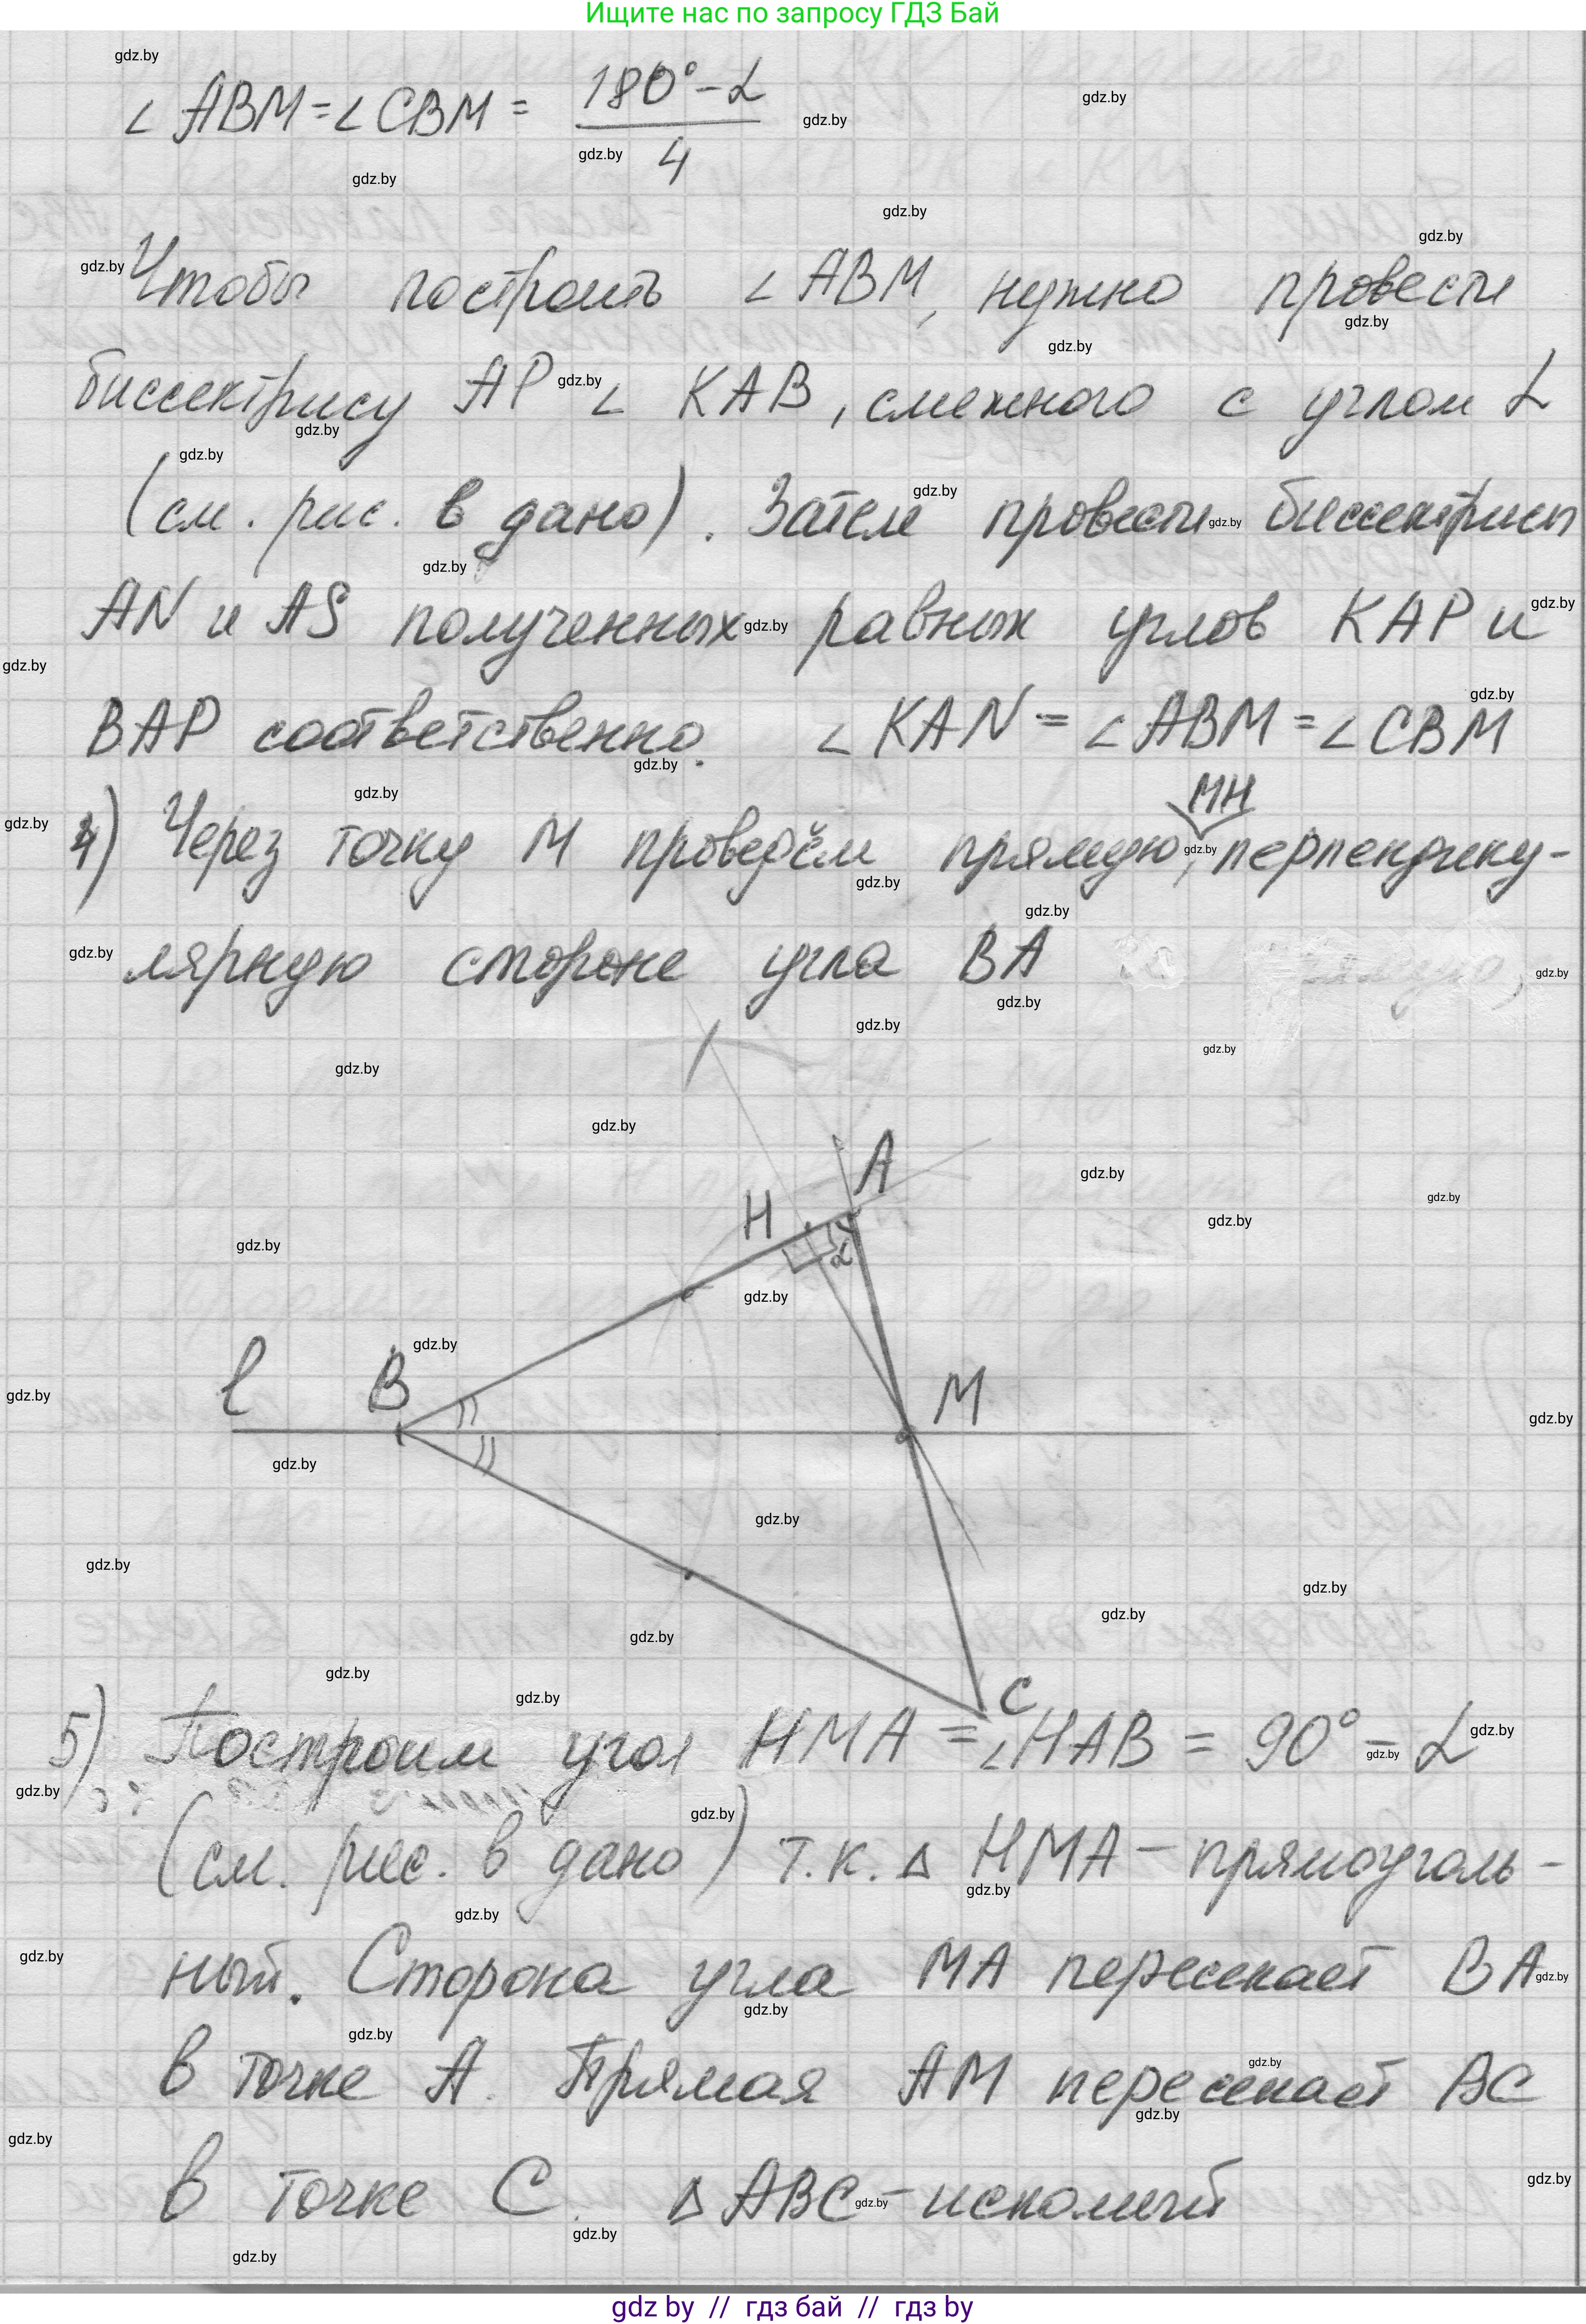 Ищите нас по запросу ГДЗ Бай
∠ABM=∠CBM = (180°-α)/4
Чтобы построить ∠ABM, нужно провести
биссектрису AP ∠ KAB, смежного с углом α
(см. рис. в дано). Затем провести биссектрисы
AN и AS полученных равных углов KAP и
BAP соответственно. ∠KAN = ∠ABM = ∠CBM
4) Через точку M проведём прямую, MH перпендику-
лярную стороне угла BA
A
H
α
l
B
M
C
5) Построим угол HMA = ∠HAB = 90° - α
(см. рис. в дано) т.к. Δ HMA - прямоуголь-
ный. Сторона угла MA пересекает BA
в точке A. Прямая AM пересекает BC
в точке C. Δ ABC - искомый
gdz.by
gdz by // гдз бай // гдз by